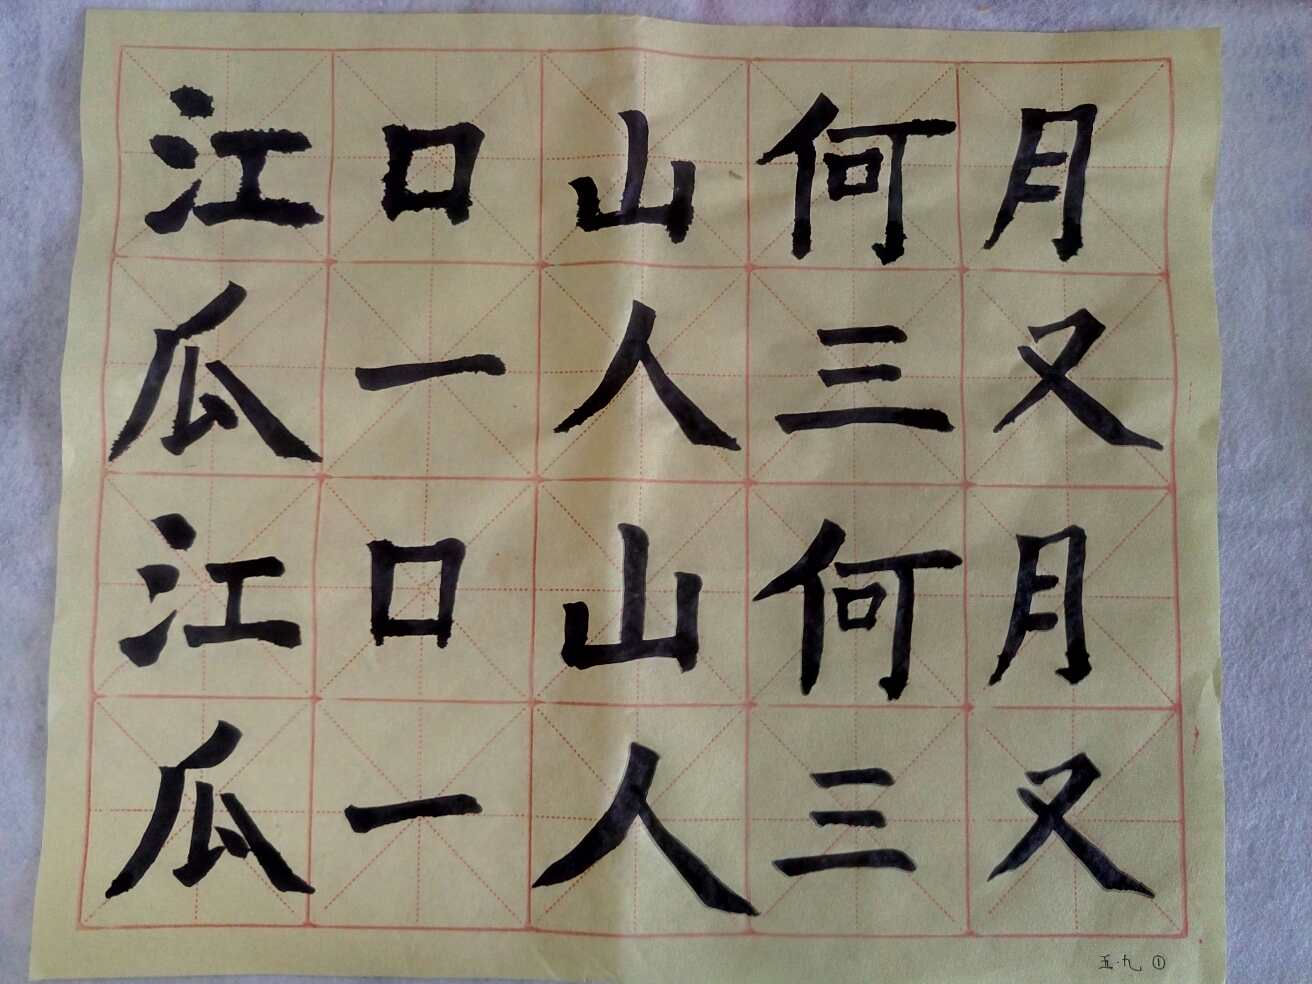 江口山何月
瓜一人三又
江口山何月
瓜一人三又
五·九 ①